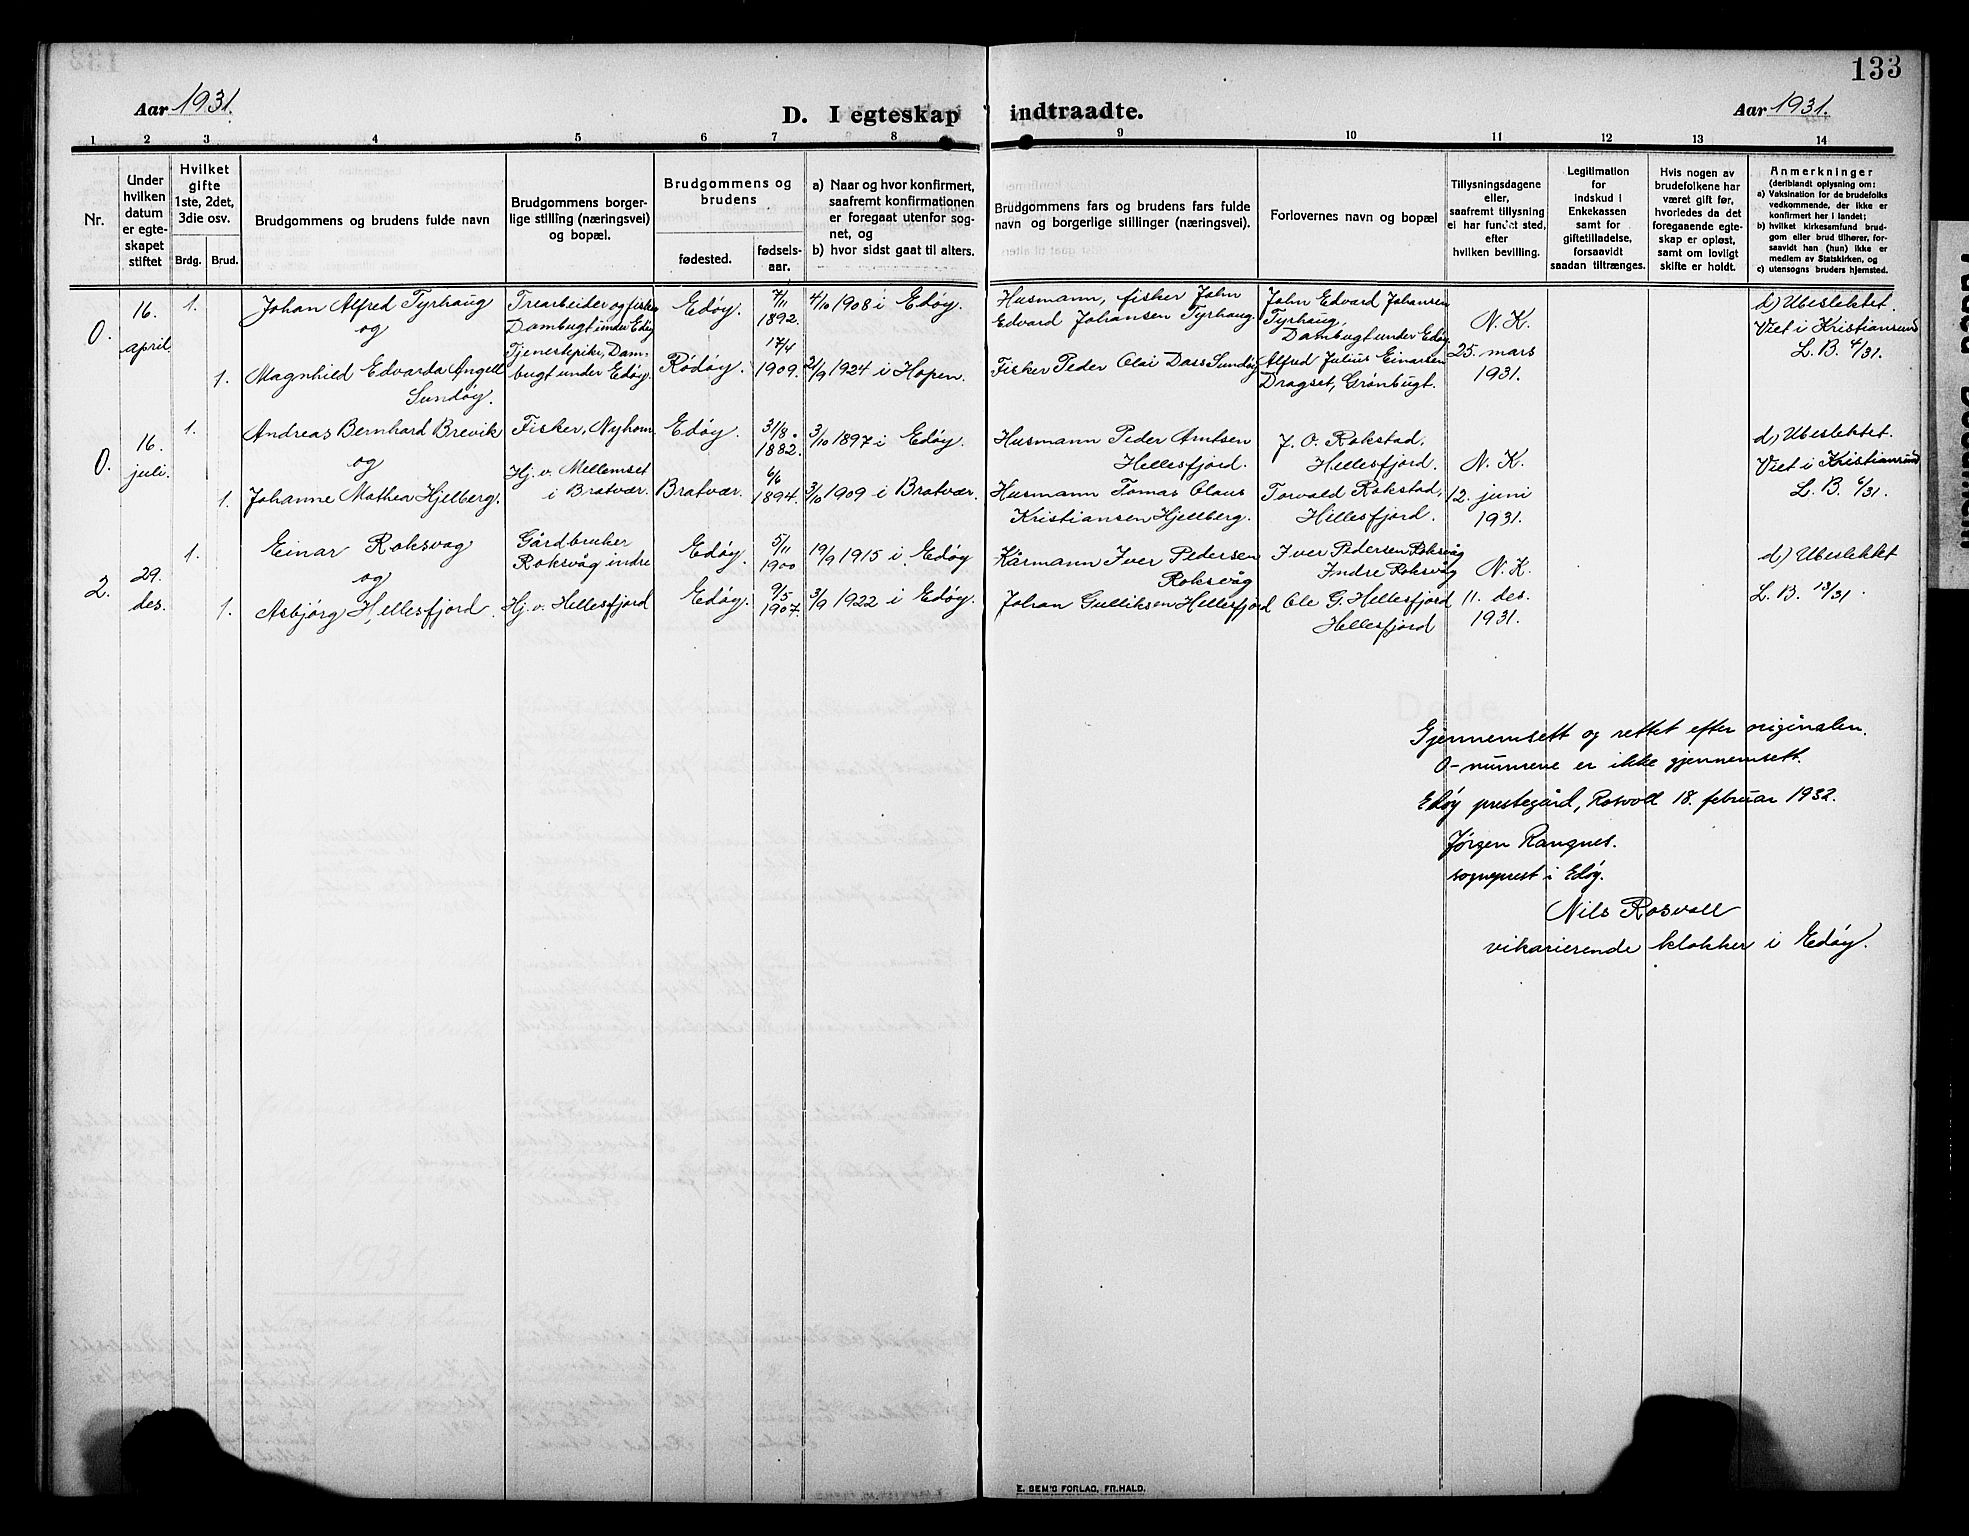 133
Aar 1931.
D. I egteskap indtraadte.
Aar 1931.
1 2 3 4 5 6 7 8 9 10 11 12 13 14
Nr.
Under hvilken datum er egteskapet stiftet
Hvilket gifte 1ste, 2det, 3die osv.
Brdg. Brud.
Brudgommens og brudens fulde navn
Brudgommens borgerlige stilling (næringsvei) og bopæl.
Brudgommens og brudens
fødested.
fødselsaar.
a) Naar og hvor konfirmert, saafremt konfirmationen er foregaat utenfor sognet, og
b) hvor sidst gaat til alters.
Brudgommens fars og brudens fars fulde navn og borgerlige stillinger (næringsvei).
Forlovernes navn og bopæl
Tillysningsdagene eller, saafremt tillysning ei har fundet sted, efter hvilken bevilling.
Legitimation for indskud i Enkekassen samt for giftetilladelse, forsaavidt saadan tiltrænges.
Hvis nogen av brudefolkene har været gift før, hvorledes da det foregaaende egteskap er opløst, samt om lovligt skifte er holdt.
Anmerkninger
(deriblandt oplysning om:
a) Vaksination for de brudefolks vedkommende, der ikke er konfirmert her i landet;
b) hvilket kirkesamfund brudgom eller brud tilhører, forsaavidt han (hun) ikke er medlem av Statskirken, og
c) utensogns bruders hjemsted.
0.
16. april.
1.
Johan Alfred Tyrhaug
og
Trearbeider og fisker
Dambugt under Edøy
Edøy.
7/11 1892.
4/10 1908 i Edøy.
Husmann, fisker John
Edvard Johansen Tyrhaug.
John Edvard Johansen
Tyrhaug,
Dambugt under Edøy
N. K.
25. mars
1931.
d) Ubeslektet.
Viet i Kristiansund
L. B. 4/31.
1.
Magnhild Edvarda Angell
Sundøy.
Tjenestepike, Dam-
bugt under Edøy.
Rødøy.
17/4 1909.
21/9 1924 i Hopen.
Fisker Peder Olai Dass Sundøy
Alfred Julius Einarsen
Dragset, Grønbugt.
0.
16. juli.
1.
Andreas Bernhard Brevik
og
Fisker, Nyhom
Edøy.
31/8. 1882.
3/10 1897 i Edøy.
Husmann Peder Arntsen
Hellesfjord.
J. O. Rokstad,
Hellesfjord.
N. K.
12. juni
1931.
d) Ubeslektet.
Viet i Kristiansund
L. B. 6/31.
1.
Johanne Mathea Hjelberg.
Hj. v. Mellemset
i Bratvær.
Bratvær.
6/6 1894.
3/10 1909 i Bratvær.
Husmann Tomas Claus
Kristiansen Hjellberg.
Torvald Rokstad,
Hellesfjord.
2.
29. des.
1.
Einar Roksvog
og
Gårdbruker
Roksvåg indre
Edøy.
5/11 1900
19/9 1915 i Edøy
Kårmann Iver Pedersen
Roksvåg
Iver Pedersen Roksvåg
Indre Roksvåg
N. K.
11. des.
1931.
d) Ubeslektet
L. B. 13/31.
1.
Asbjørg Hellesfjord.
Hj. v. Hellesfjord
Edøy.
9/5 1907.
3/9 1922 i Edøy.
Johan Gulliksen Hellesfjord
Ole G. Hellesfjord
Hellesfjord
Gjennemsett og rettet efter originalen.
0-numrene er ikke gjennemsett.
Edøy prestegård, Rosvoll 18. februar 1932.
Jørgen Rangnes.
sogneprest i Edøy.
Nils Rosvoll
vikarierende klokker i Edøy.
E. SEM'S FORLAG, FR.HALD.